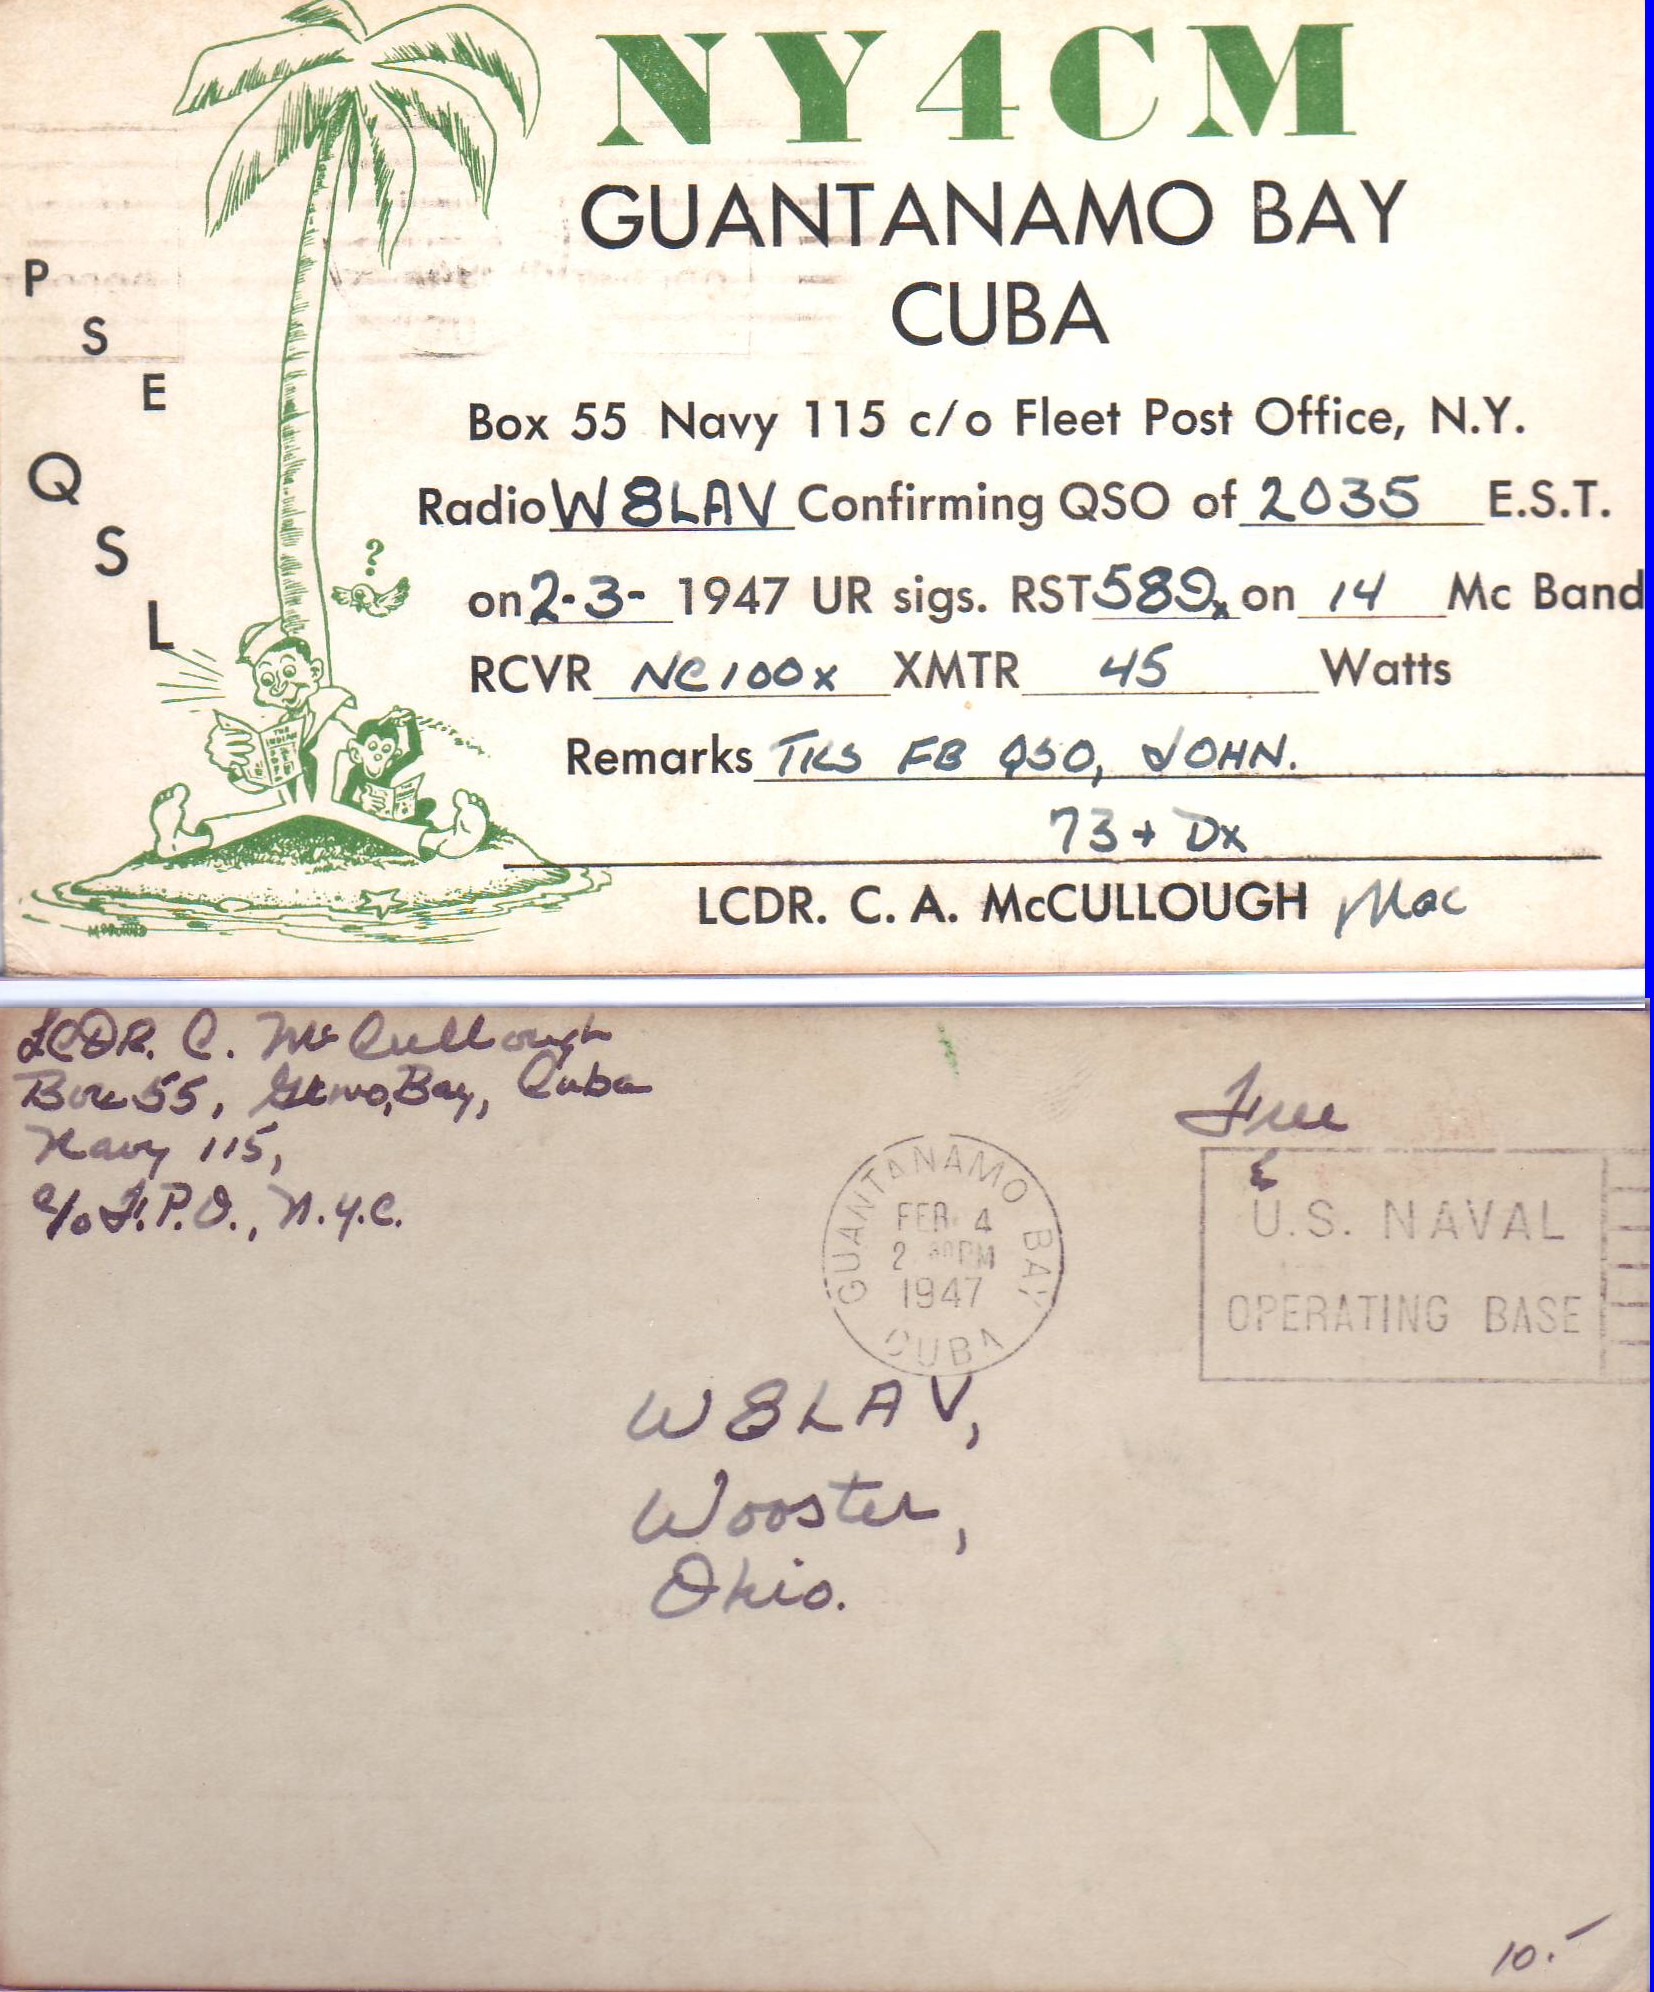 NY4CM
GUANTANAMO BAY
CUBA
P
S
E
Q
S
L
?
Box 55 Navy 115 c/o Fleet Post Office, N.Y.
Radio W8LAV Confirming QSO of 2035 E.S.T.
on 2-3- 1947 UR sigs. RST 589x on 14 Mc Band
RCVR NC100x XMTR 45 Watts
Remarks TKS FB QSO, JOHN.
73 + DX
LCDR. C. A. McCULLOUGH Mac
THE
LCDR. C. McCullough
Box 55, Gtmo, Bay, Cuba
Navy 115,
c/o F.P.O., N.Y.C.
Free
GUANTANAMO BAY
FEB 4
2 30 PM
1947
CUBA
U.S. NAVAL
OPERATING BASE
W8LAV,
Wooster,
Ohio.
10.-